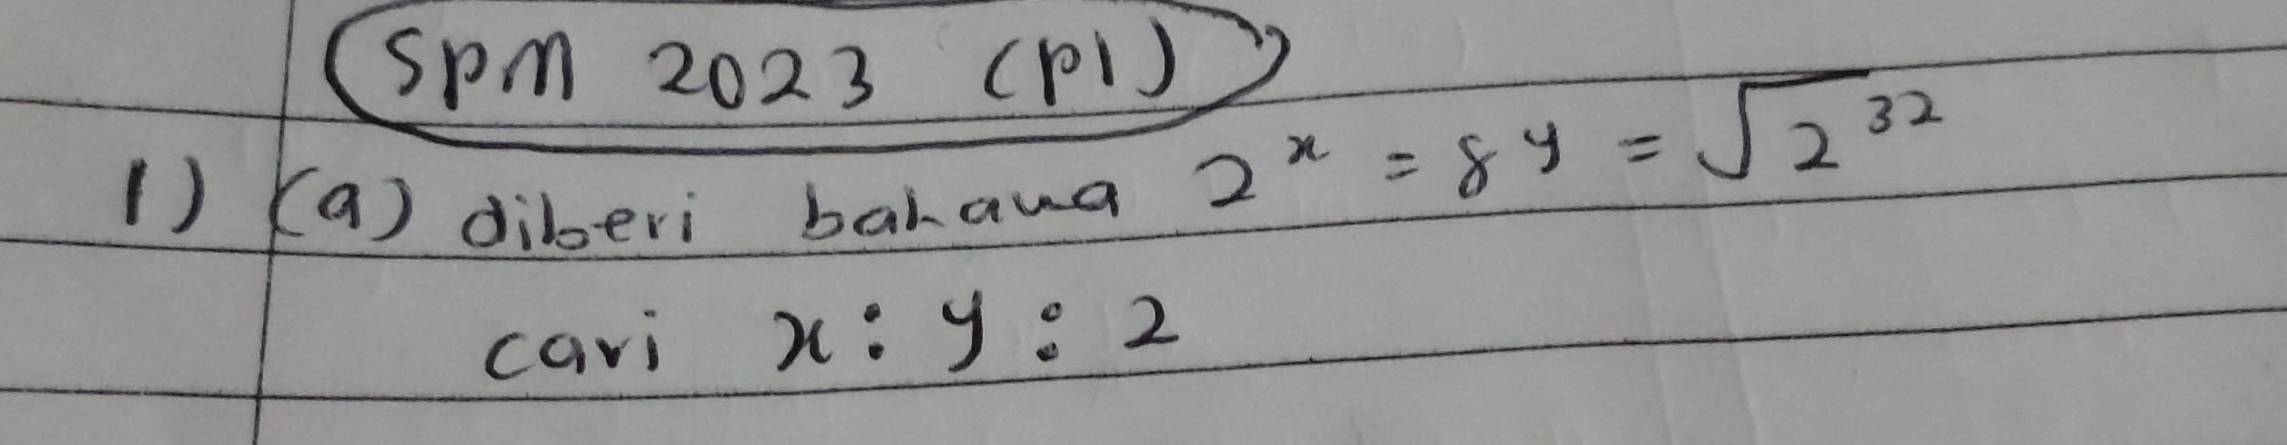 SPM 2023 (P1)
1) (a) diberi bahawa 2^x = 8^y = √2^32
cari x : y : 2